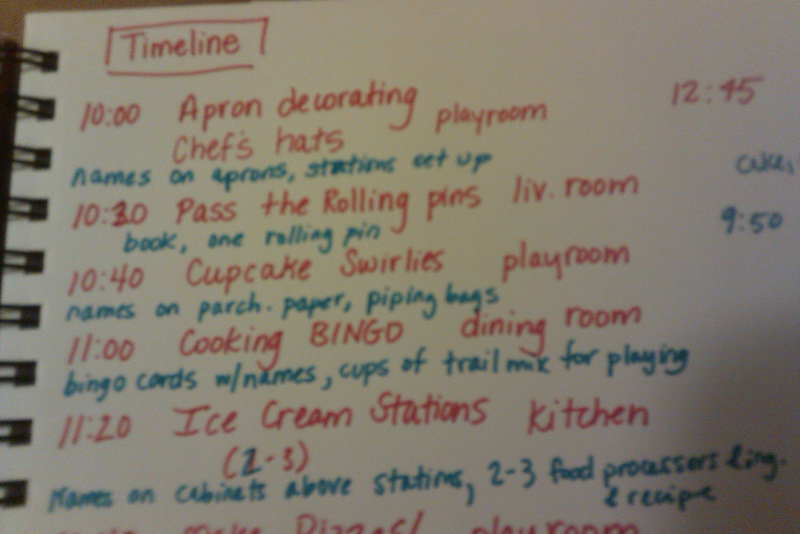 Timeline
10:00 Apron decorating playroom 12:45
Chef's hats
names on aprons, stations set up
cake,
10:30 Pass the Rolling pins liv. room
book, one rolling pin 9:50
10:40 Cupcake Swirlies playroom
names on parch. paper, piping bags
11:00 Cooking BINGO dining room
bingo cards w/names, cups of trail mix for playing
11:20 Ice Cream Stations kitchen
(2-3)
Names on cabinets above stations, 2-3 food processors &ing.
& recipe
Pizzas! playroom